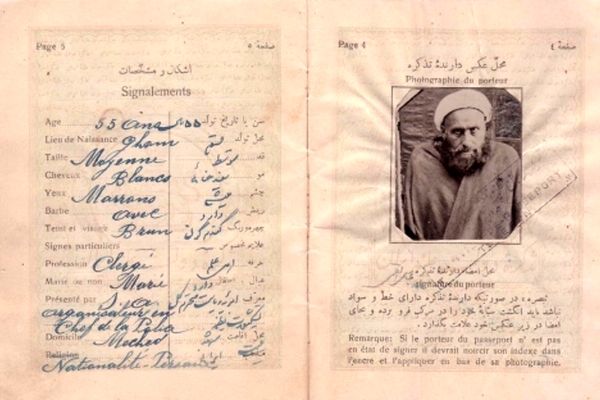 Page 5
صفحهٔ ٥
اشکال و مشخصات
Signalements
Age 55 Ans سن یا تاریخ تولد
Lieu de Naissance Ghom محل تولد قم
Taille Moyenne قد متوسط
Cheveux Blancs مو
Yeux Marrons چشم
Barbe avec ریش دارد
Teint et visage Brun گندم گون
Signes particuliers علایم مخصوص
Profession Clergé حرفه
Marié ou non Marié دارد
Présenté par معرف
organisateur en
Chef de la
Domicile Meched محل اقامت مشهد
Religion
Nationalité-Persane
Page 4
صفحهٔ ٤
محل عکس دارندهٔ تذکره
Photographie du porteur
محل امضاء دارندهٔ تذکره
signature du porteur
تبصره در صورتیکه دارندهٔ تذکره دارای خط و سواد
نباشد باید انگشت سبابهٔ خود را در مرکب فرو برده و بجای
امضا در زیر عکس خود علامت بگذارد.
Remarque: Si le porteur du passeport n' est pas
en état de signer il devrait noircir son indexe dans
l'encre et l'appliquer en bas de sa photographie.